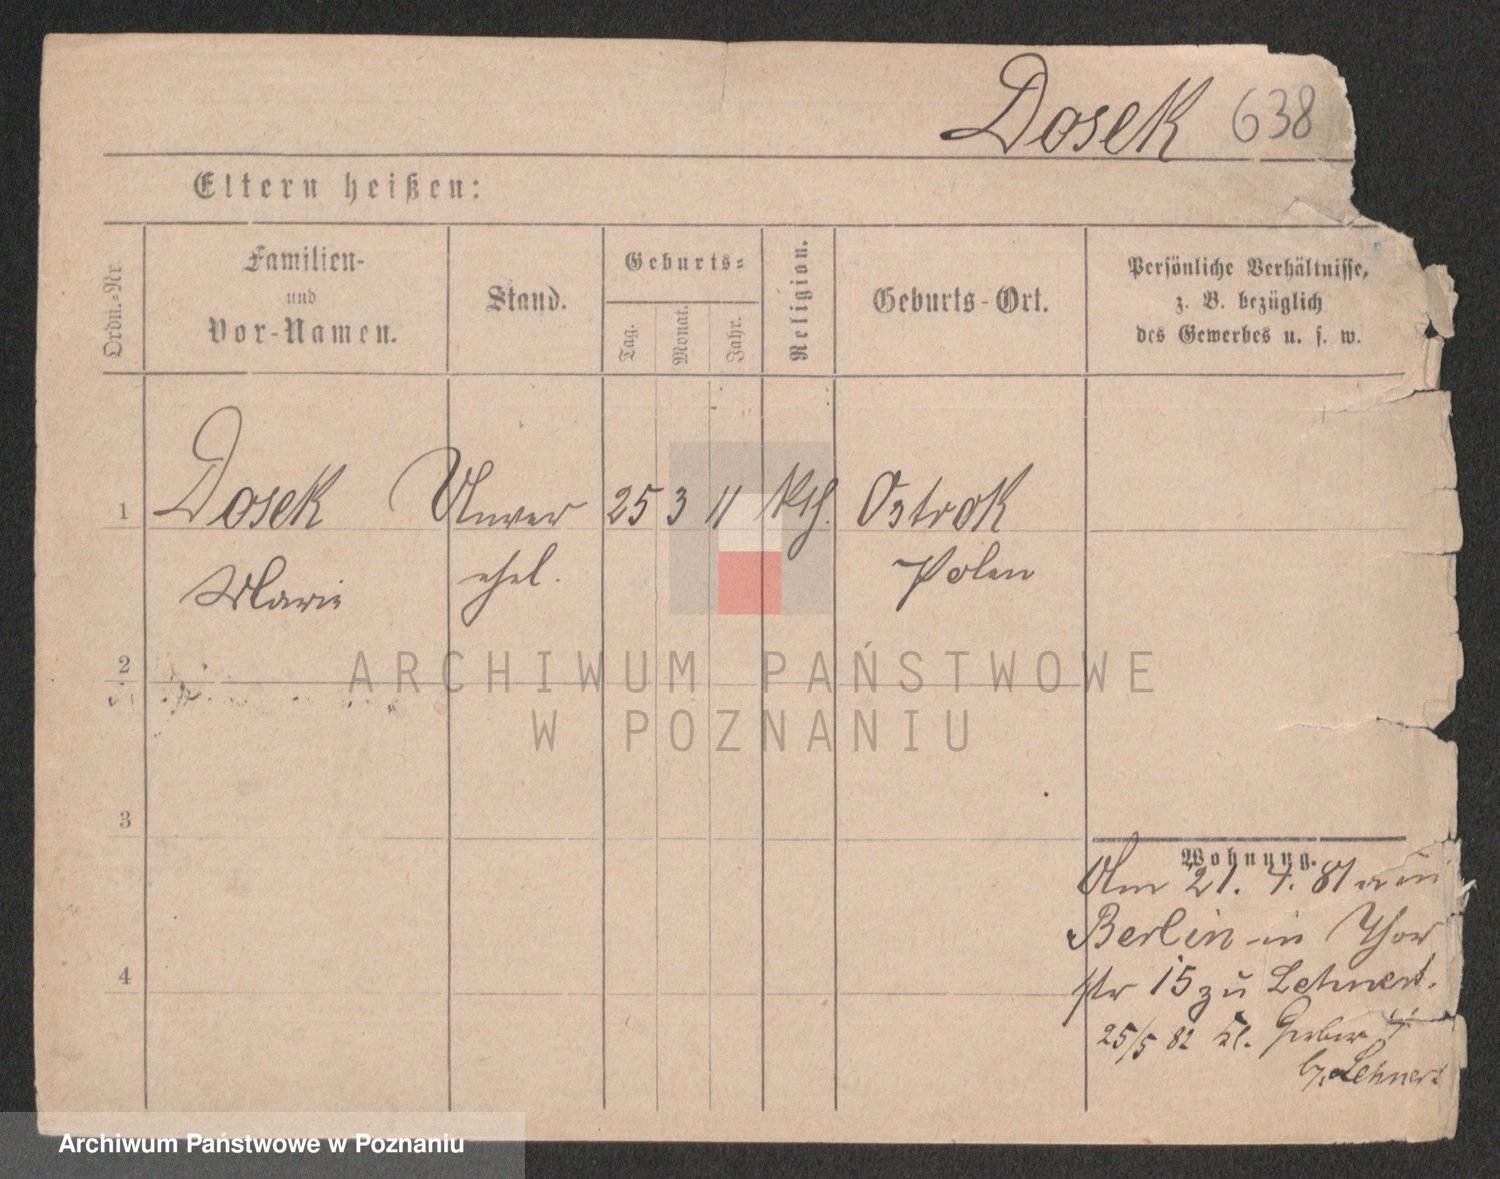 Dosek 638
Eltern heißen:
Ordn.-Nr
Familien-
und
Vor-Namen.
Stand.
Geburts-
Tag.
Monat.
Jahr.
Religion.
Geburts-Ort.
Persönliche Verhältnisse,
z. B. bezüglich
des Gewerbes u. s. w.
1 Dosek Unver 25 3 11 Kth. Ostrok
Marie ehel. Polen
2
3
4
Wohnung.
Am 21. 4. 81
Berlin in Thor
str 15 zu Lehnert.
25/5 82 Kl. Gerber
b. Lehnert
ARCHIWUM PAŃSTWOWE
W POZNANIU
Archiwum Państwowe w Poznaniu